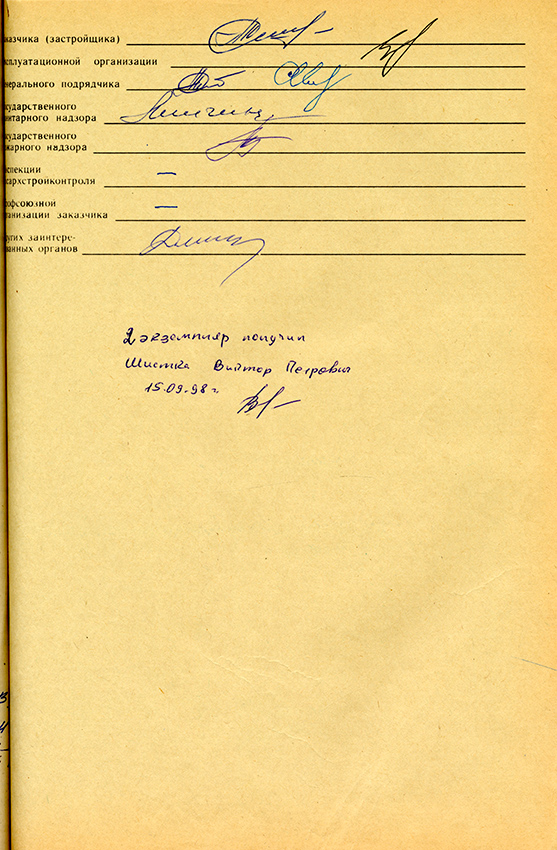 азчика (застройщика)
сплуатационной организации
нерального подрядчика
сударственного
нитарного надзора
сударственного
жарного надзора
спекции
сархстройконтроля —
офсоюзной
ганизации заказчика —
угих заинтере-
ванных органов
2 экземпляр получил
Шистка Виктор Петрович
15.09.98 г.